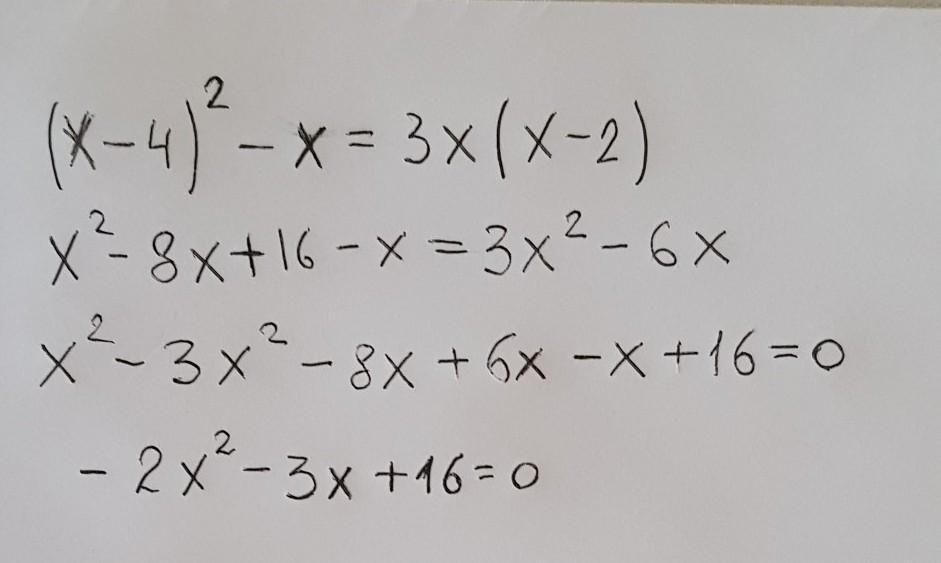 (x-4)² - x = 3x(x-2)
x² - 8x + 16 - x = 3x² - 6x
x² - 3x² - 8x + 6x - x + 16 = 0
- 2x² - 3x + 16 = 0